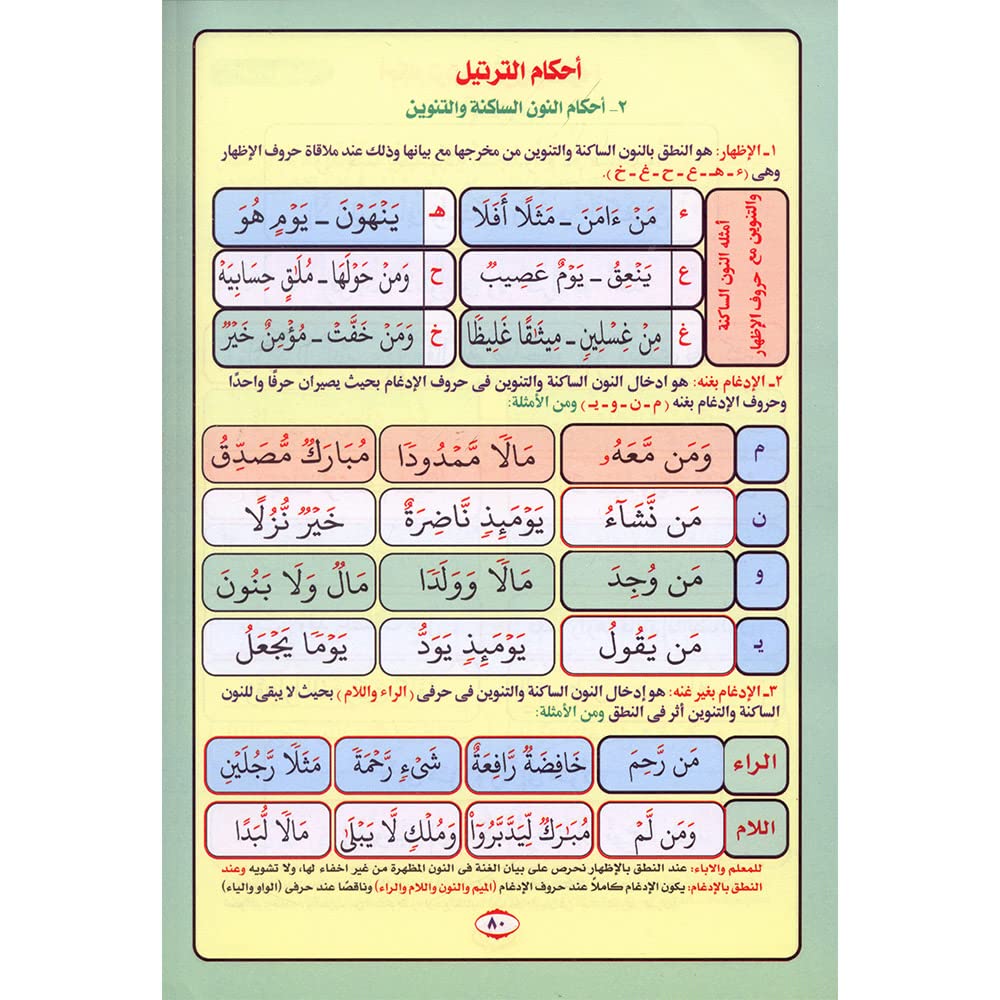 أحكام الترتيل
٢- أحكام النون الساكنة والتنوين
١ـ الإظهار: هو النطق بالنون الساكنة والتنوين من مخرجها مع بيانها وذلك عند ملاقاة حروف الإظهار
وهى (ء - هـ - ع - ح - غ - خ ).
أمثله النون الساكنة
والتنوين مع حروف الإظهار
ء مَنْ ءَامَنَ ـ مَثَلًا أَفَلَا هـ يَنْهَوْنَ ـ يَوْمٍ هُوَ
ع يَنْعِقُ ـ يَوْمٌ عَصِيبٌ ح وَمِنْ حَوْلَهَا ـ مُلَـٰقٍ حِسَابِيَهْ
غ مِنْ غِسْلِينٍ ـ مِيثَـٰقًا غَلِيظًا خ وَمَنْ خَفَّتْ ـ مُؤْمِنٌ خَيْرٌ
٢ـ الإدغام بغنه: هو ادخال النون الساكنة والتنوين فى حروف الإدغام بحيث يصيران حرفًا واحدًا
وحروف الإدغام بغنه ( م - ن - و - يـ ) ومن الأمثلة:
م وَمَن مَّعَهُۥ مَالًا مَّمْدُودًا مُبَارَكٌ مُّصَدِّقُ
ن مَن نَّشَآءُ يَوْمَئِذٍ نَّاضِرَةٌ خَيْرٌ نُّزُلًا
و مَن وُجِدَ مَالًا وَوَلَدًا مَالٌ وَلَا بَنُونَ
يـ مَن يَقُولُ يَوْمَئِذٍ يَوَدُّ يَوْمًا يَجْعَلُ
٣ـ الإدغام بغير غنه: هو إدخال النون الساكنة والتنوين فى حرفى ( الراء واللام ) بحيث لا يبقى للنون
الساكنة والتنوين أثر فى النطق ومن الأمثلة:
الراء مَن رَّحِمَ خَافِضَةٌ رَّافِعَةٌ شَىْءٍ رَّحْمَةً مَثَلًا رَّجُلَيْنِ
اللام وَمَن لَّمْ مُبَـٰرَكٌ لِّيَدَّبَّرُوٓا۟ وَمُلْكٍ لَّا يَبْلَىٰ مَالًا لُّبَدًا
للمعلم والاباء: عند النطق بالإظهار نحرص على بيان الغنة فى النون المظهرة من غير اخفاء لها، ولا تشويه وعند
النطق بالإدغام: يكون الإدغام كاملاً عند حروف الإدغام (الميم والنون واللام والراء) وناقصًا عند حرفى (الواو والياء)
٨٠